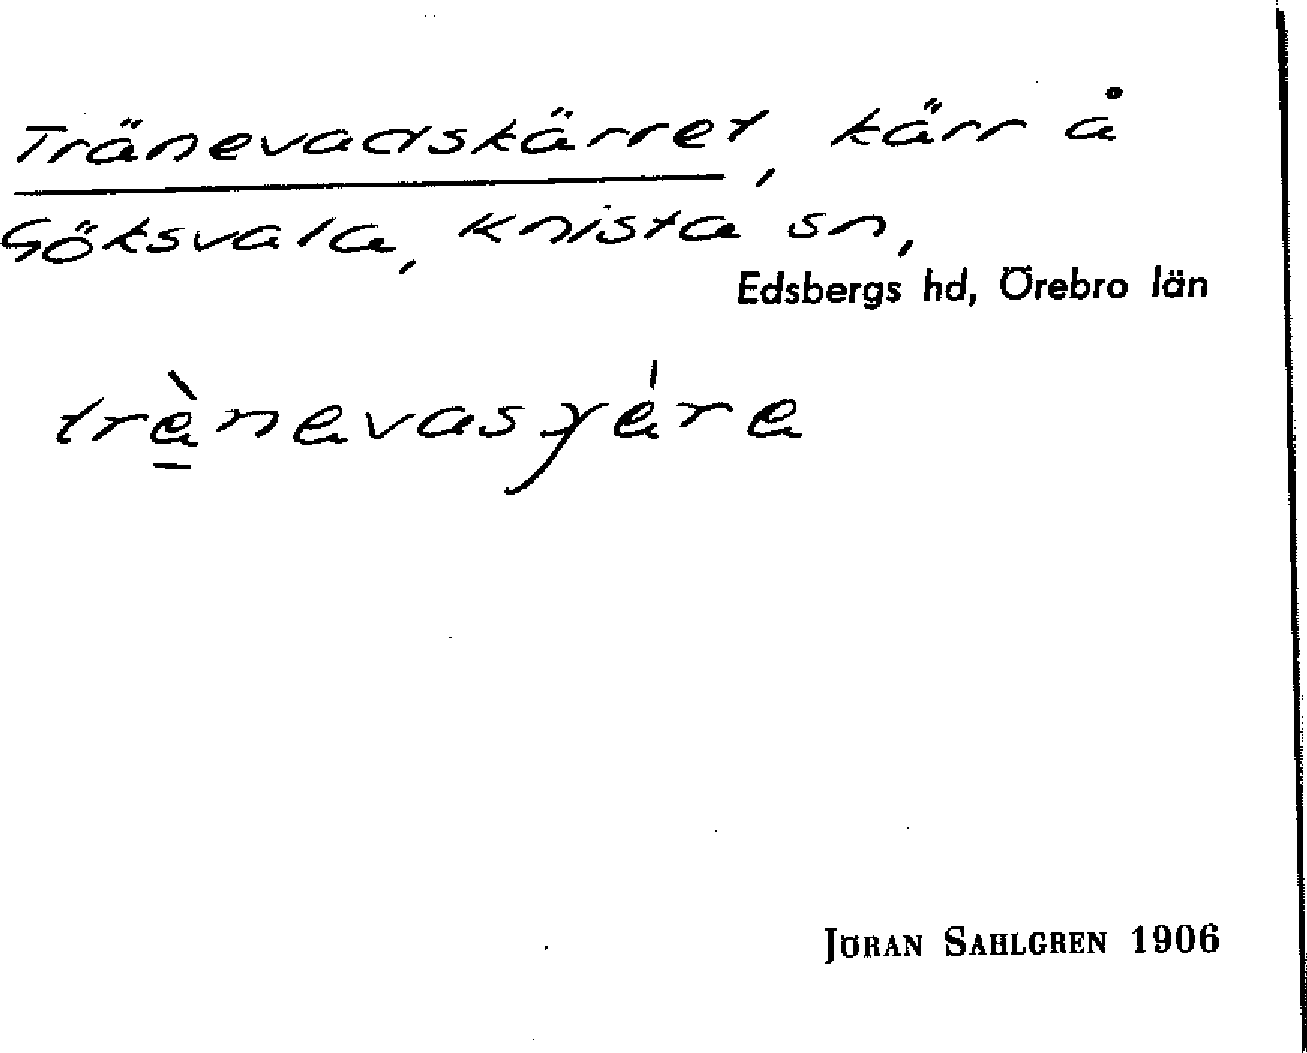 Tränevadskärret, kärr å
Göksvala, Knista sn,
Edsbergs hd, Örebro län
trä̀nävasɣä́rä
JÖRAN SAHLGREN 1906